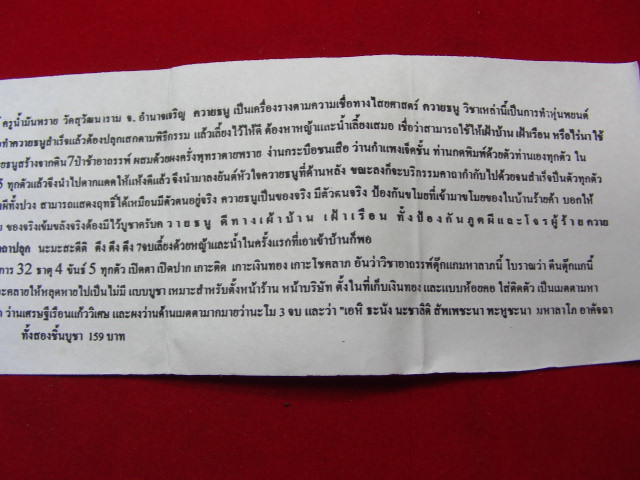 ครูน้ำมันพราย วัดสุวัฒนาราม จ. อำนาจเจริญ ควายธนู เป็นเครื่องรางตามความเชื่อทางไสยศาสตร์ ควายธนู วิชาเหล่านี้เป็นการทำหุ่นพยนต์
ทำควายธนูสำเร็จแล้วต้องปลุกเสกตามพิธีกรรม แล้วเลี้ยงไว้ให้ดี ต้องหาหญ้าและน้ำเลี้ยงเสมอ เชื่อว่าสามารถใช้ให้เฝ้าบ้าน เฝ้าเรือน หรือไร่นา ใช้
ยธนูสร้างจากดิน 7 ป่าช้าอาถรรพ์ ผสมด้วยผงครั่งพุทราตายพราย งานกระบือชนเสือ ว่านกำแพงเจ็ดชั้น ท่านกดพิมพ์ด้วยตัวท่านเองทุกตัว ใน
5 ทุกตัวแล้วจึงนำไปตากแดดให้แห้งดีแล้ว จึงนำมาลงยันต์หัวใจควายธนูที่ด้านหลัง ขณะลงก็จะบริกรรมคาถากำกับไปด้วยจนสำเร็จเป็นตัวทุกตัว
ทั้งปวง สามารถแสดงฤทธิ์ได้เหมือนมีตัวตนอยู่จริง ควายธนูเป็นของจริง มีตัวตนจริง ป้องกันขโมยที่เข้ามาขโมยของในบ้านร้ายค้า บอกให้
ของจริงเข้มขลังจริงต้องมีไว้บูชาครับ ควายธนู ดีทางเฝ้าบ้าน เฝ้าเรือน ทั้งป้องกันภูตผีและโจรผู้ร้าย ควาย
ถาปลุก นะมะสะตีติ ตึง ตึง ตึง 7จบเลี้ยงด้วยหญ้าและน้ำในครั้งแรกที่เอาเข้าบ้านก็พอ
การ 32 ธาตุ 4 ขันธ์ 5 ทุกตัว เปิดตา เปิดปาก เกาะติด เกาะเงินทอง เกาะโชคลาภ อันว่าวิชาอาถรรพ์ตุ๊กแกมหาลาภนี้ โบราณว่า ตีนตุ๊กแกนี้
ะคลายให้หลุดหายไปเป็นไม่มี แบบบูชา เหมาะสำหรับตั้งหน้าร้าน หน้าบริษัท ตั้งในที่เก็บเงินทอง และแบบห้อยคอ ใส่ติดตัว เป็นเมตตามหา
ว่านเศรษฐีเรือนแก้ววิเศษ และผงว่านด้านเมตตามากมายว่านะโม 3 จบ และว่า "เอหิ ธะนัง นะชาลิติ สัพเพชะนา พะหูชะนา มหาลาโภ อาคัจฉา
ทั้งสองชิ้นบูชา 159 บาท